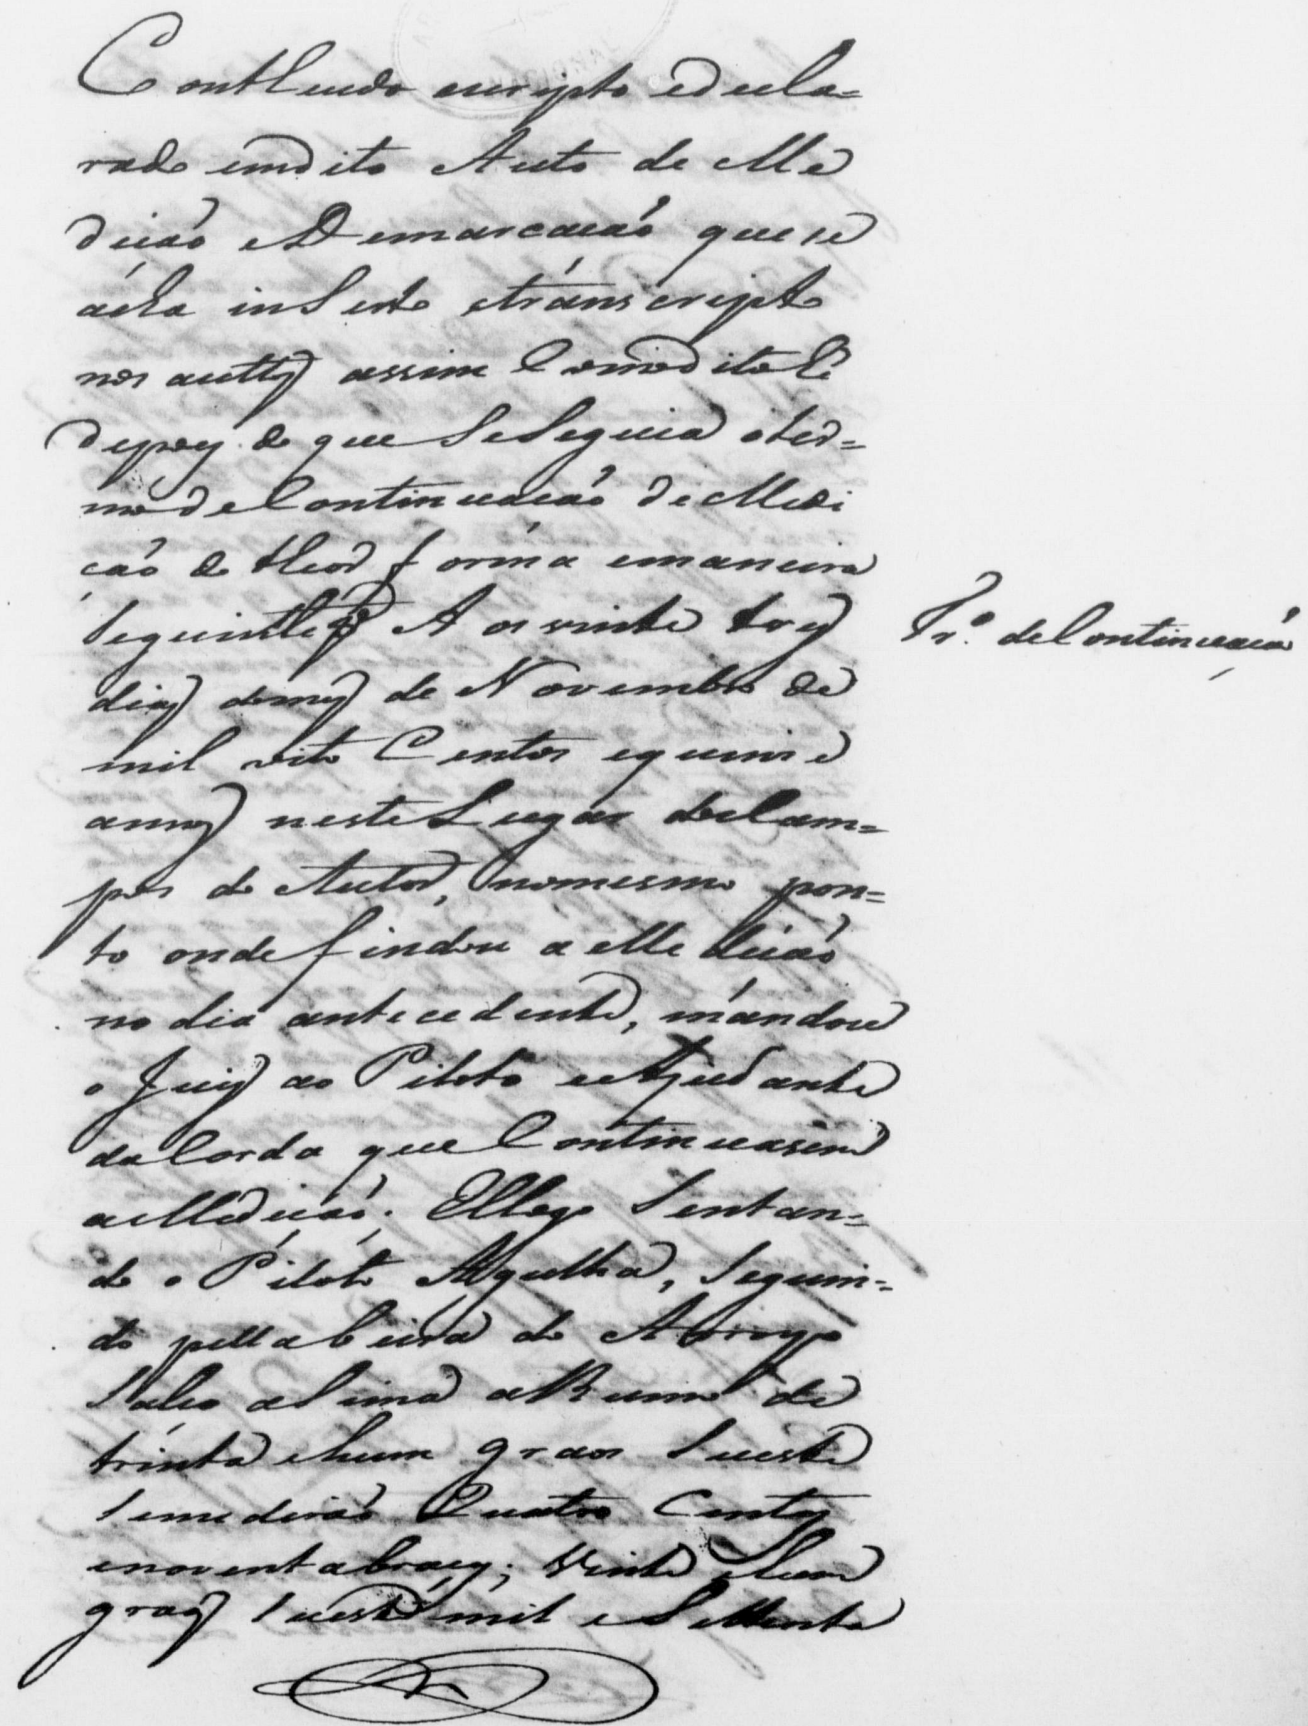 Conthudo escripto edecla=
rado emdito Auto de Me
dicaõ eDemarcacaõ que se
acha inSerto etranscripto
nos auttos assim Comodito he
depoes do que SeSeguia oter=
mo deContinuacaõ de Medi
caõ do theor forma emaneira
Seguintte Aos vinte tres
dias domes de Novembro de
mil oito Centos equinze
annos nesteLugar dosCam=
pos do Autor, nomesmo pon=
to ondefindou aMedicaõ
no dia antecedente, mandou
o Juis ao Piloto eAjudante
daCorda que Continuasem
aMedicaõ. Ellogo Sentan=
do o Piloto Agulha, Seguin=
do pellabeira do Arroyo
Salso aSima aRumo de
trinta ehum graos Sueste
Semediraõ Quatro Centos
enoventabraças; Vinte ehum
graos Sueste mil eSettenta
Tr.º deContinuacaõ